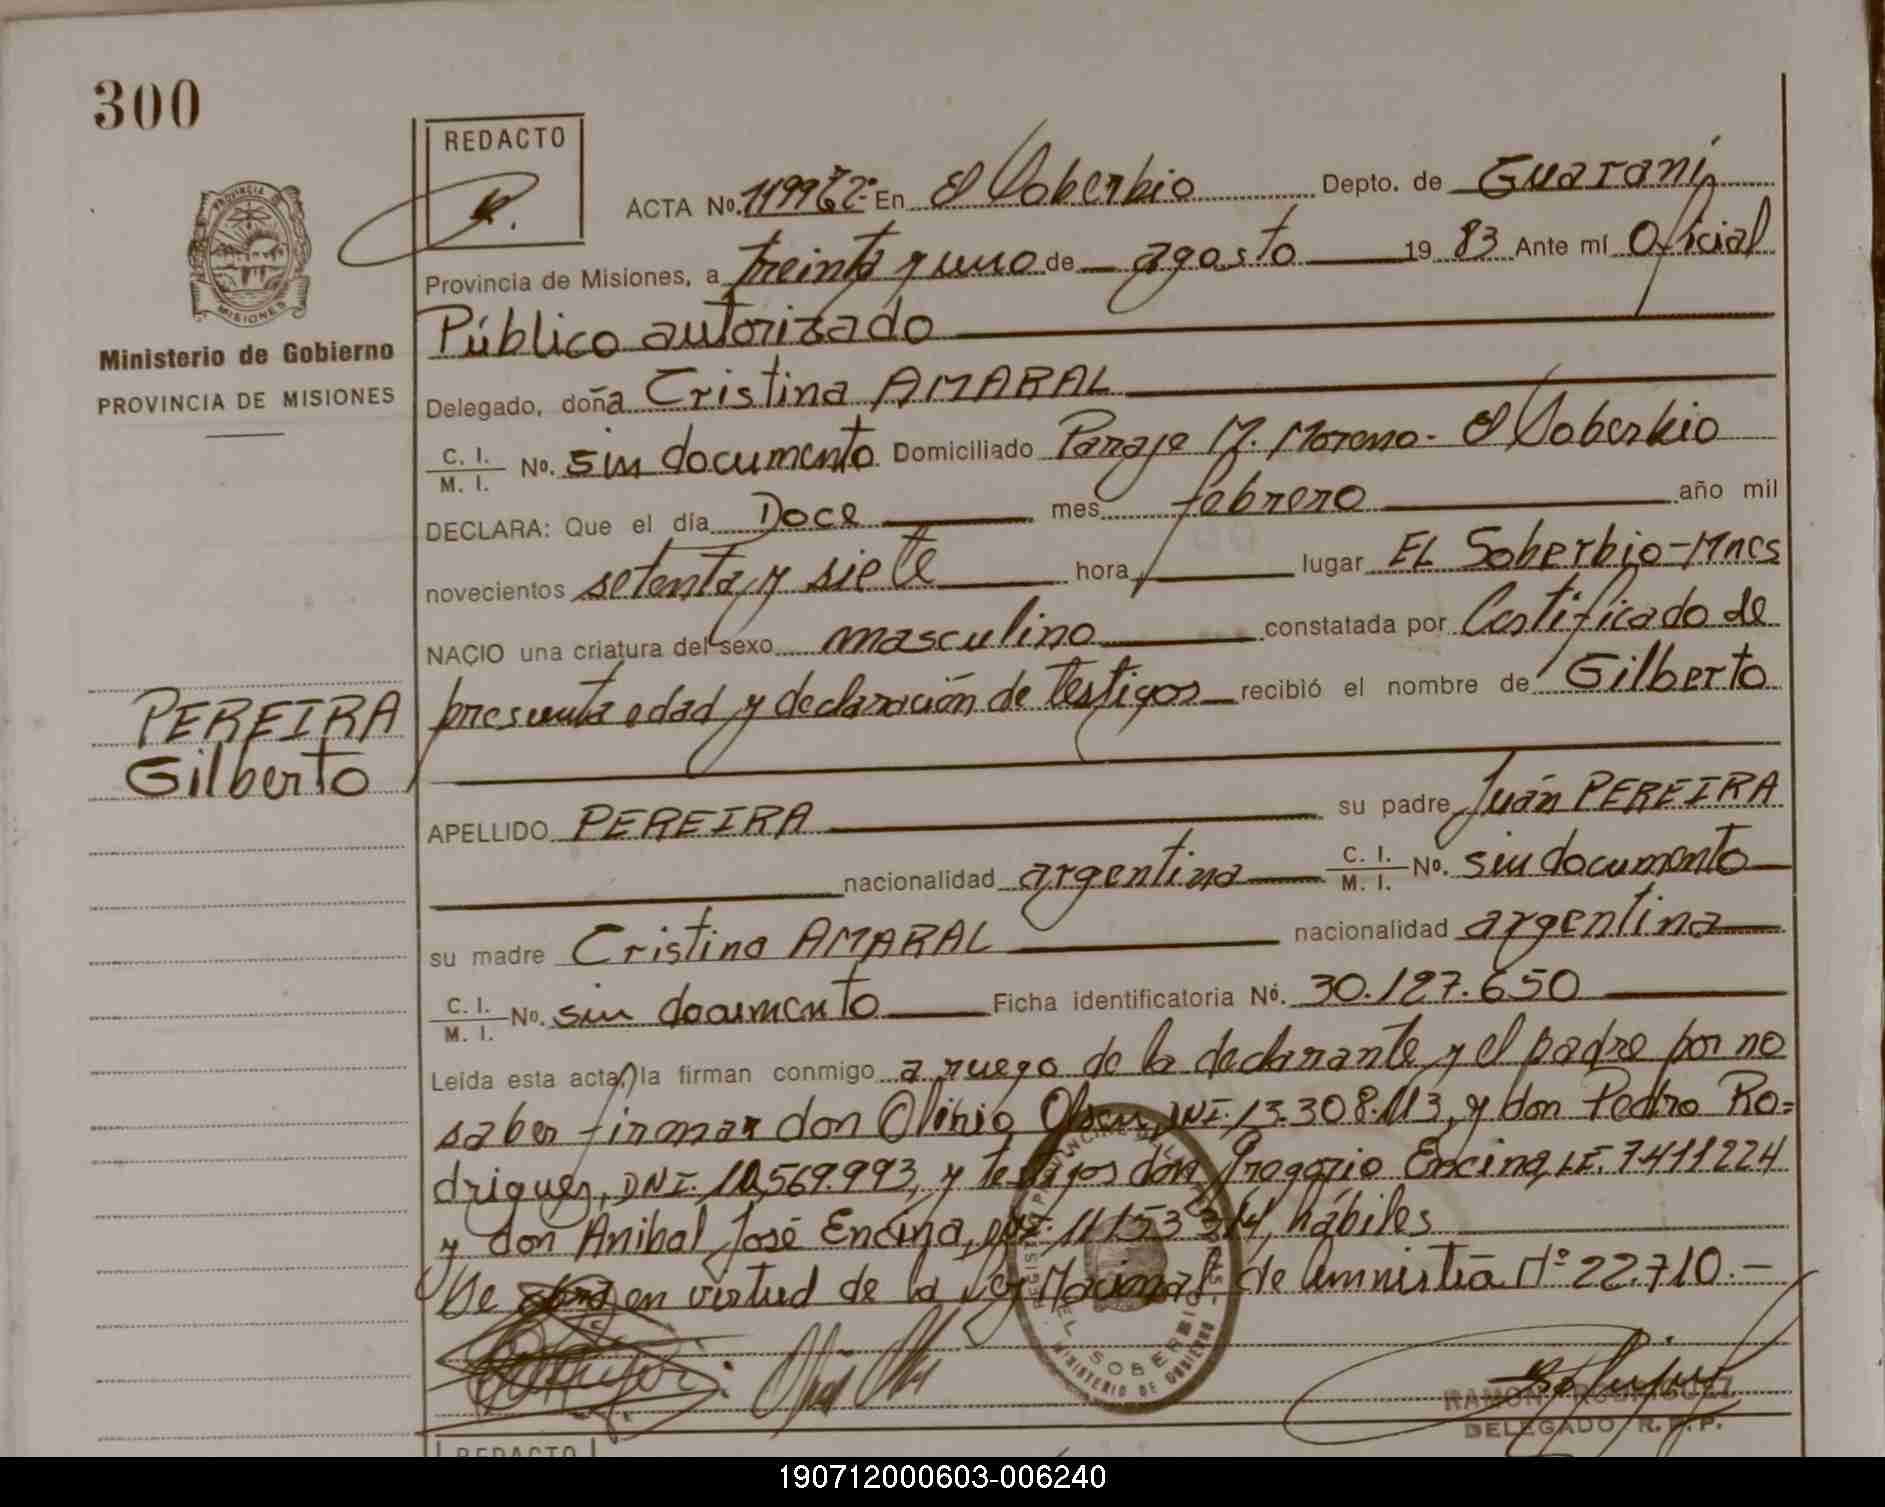 300
REDACTO
PROVINCIA DE
MISIONES
Ministerio de Gobierno
PROVINCIA DE MISIONES
PEREIRA
Gilberto
ACTA No. En El Soberbio Depto. de Guaraní
Provincia de Misiones, a treinta y uno de agosto 19 83 Ante mí Oficial
Público autorizado
Delegado, doña Cristina AMARAL
C. I. M. I. No. sin documento Domiciliado Paraje M. Moreno - El Soberbio
DECLARA: Que el día Doce mes febrero año mil
novecientos setenta y siete hora lugar EL Soberbio-Mnes
NACIO una criatura del sexo masculino constatada por Certificado de
presunta edad y declaración de testigos recibió el nombre de Gilberto
APELLIDO PEREIRA su padre Juán PEREIRA
nacionalidad argentina C. I. M. I. No. sin documento
su madre Cristina AMARAL nacionalidad argentina
C. I. M. I. No. sin documento Ficha identificatoria No. 30.127.650
Leída esta acta, la firman conmigo a ruego de la declarante y el padre por no
saber firmar don DNI. 13.308.113, y don Pedro Ro=
driguez, DNI. 10,569.993, y testigos don Encina, LE. 7411224
y don Aníbal José Encina, hábiles
en virtud de la Ley Nacional de Amnistía Nº 22.710.-
EL SOBERBIO
MINISTERIO DE GOBIERNO
RAMON RODRIGUEZ
DELEGADO R. P. P.
REDACTO
190712000603-006240